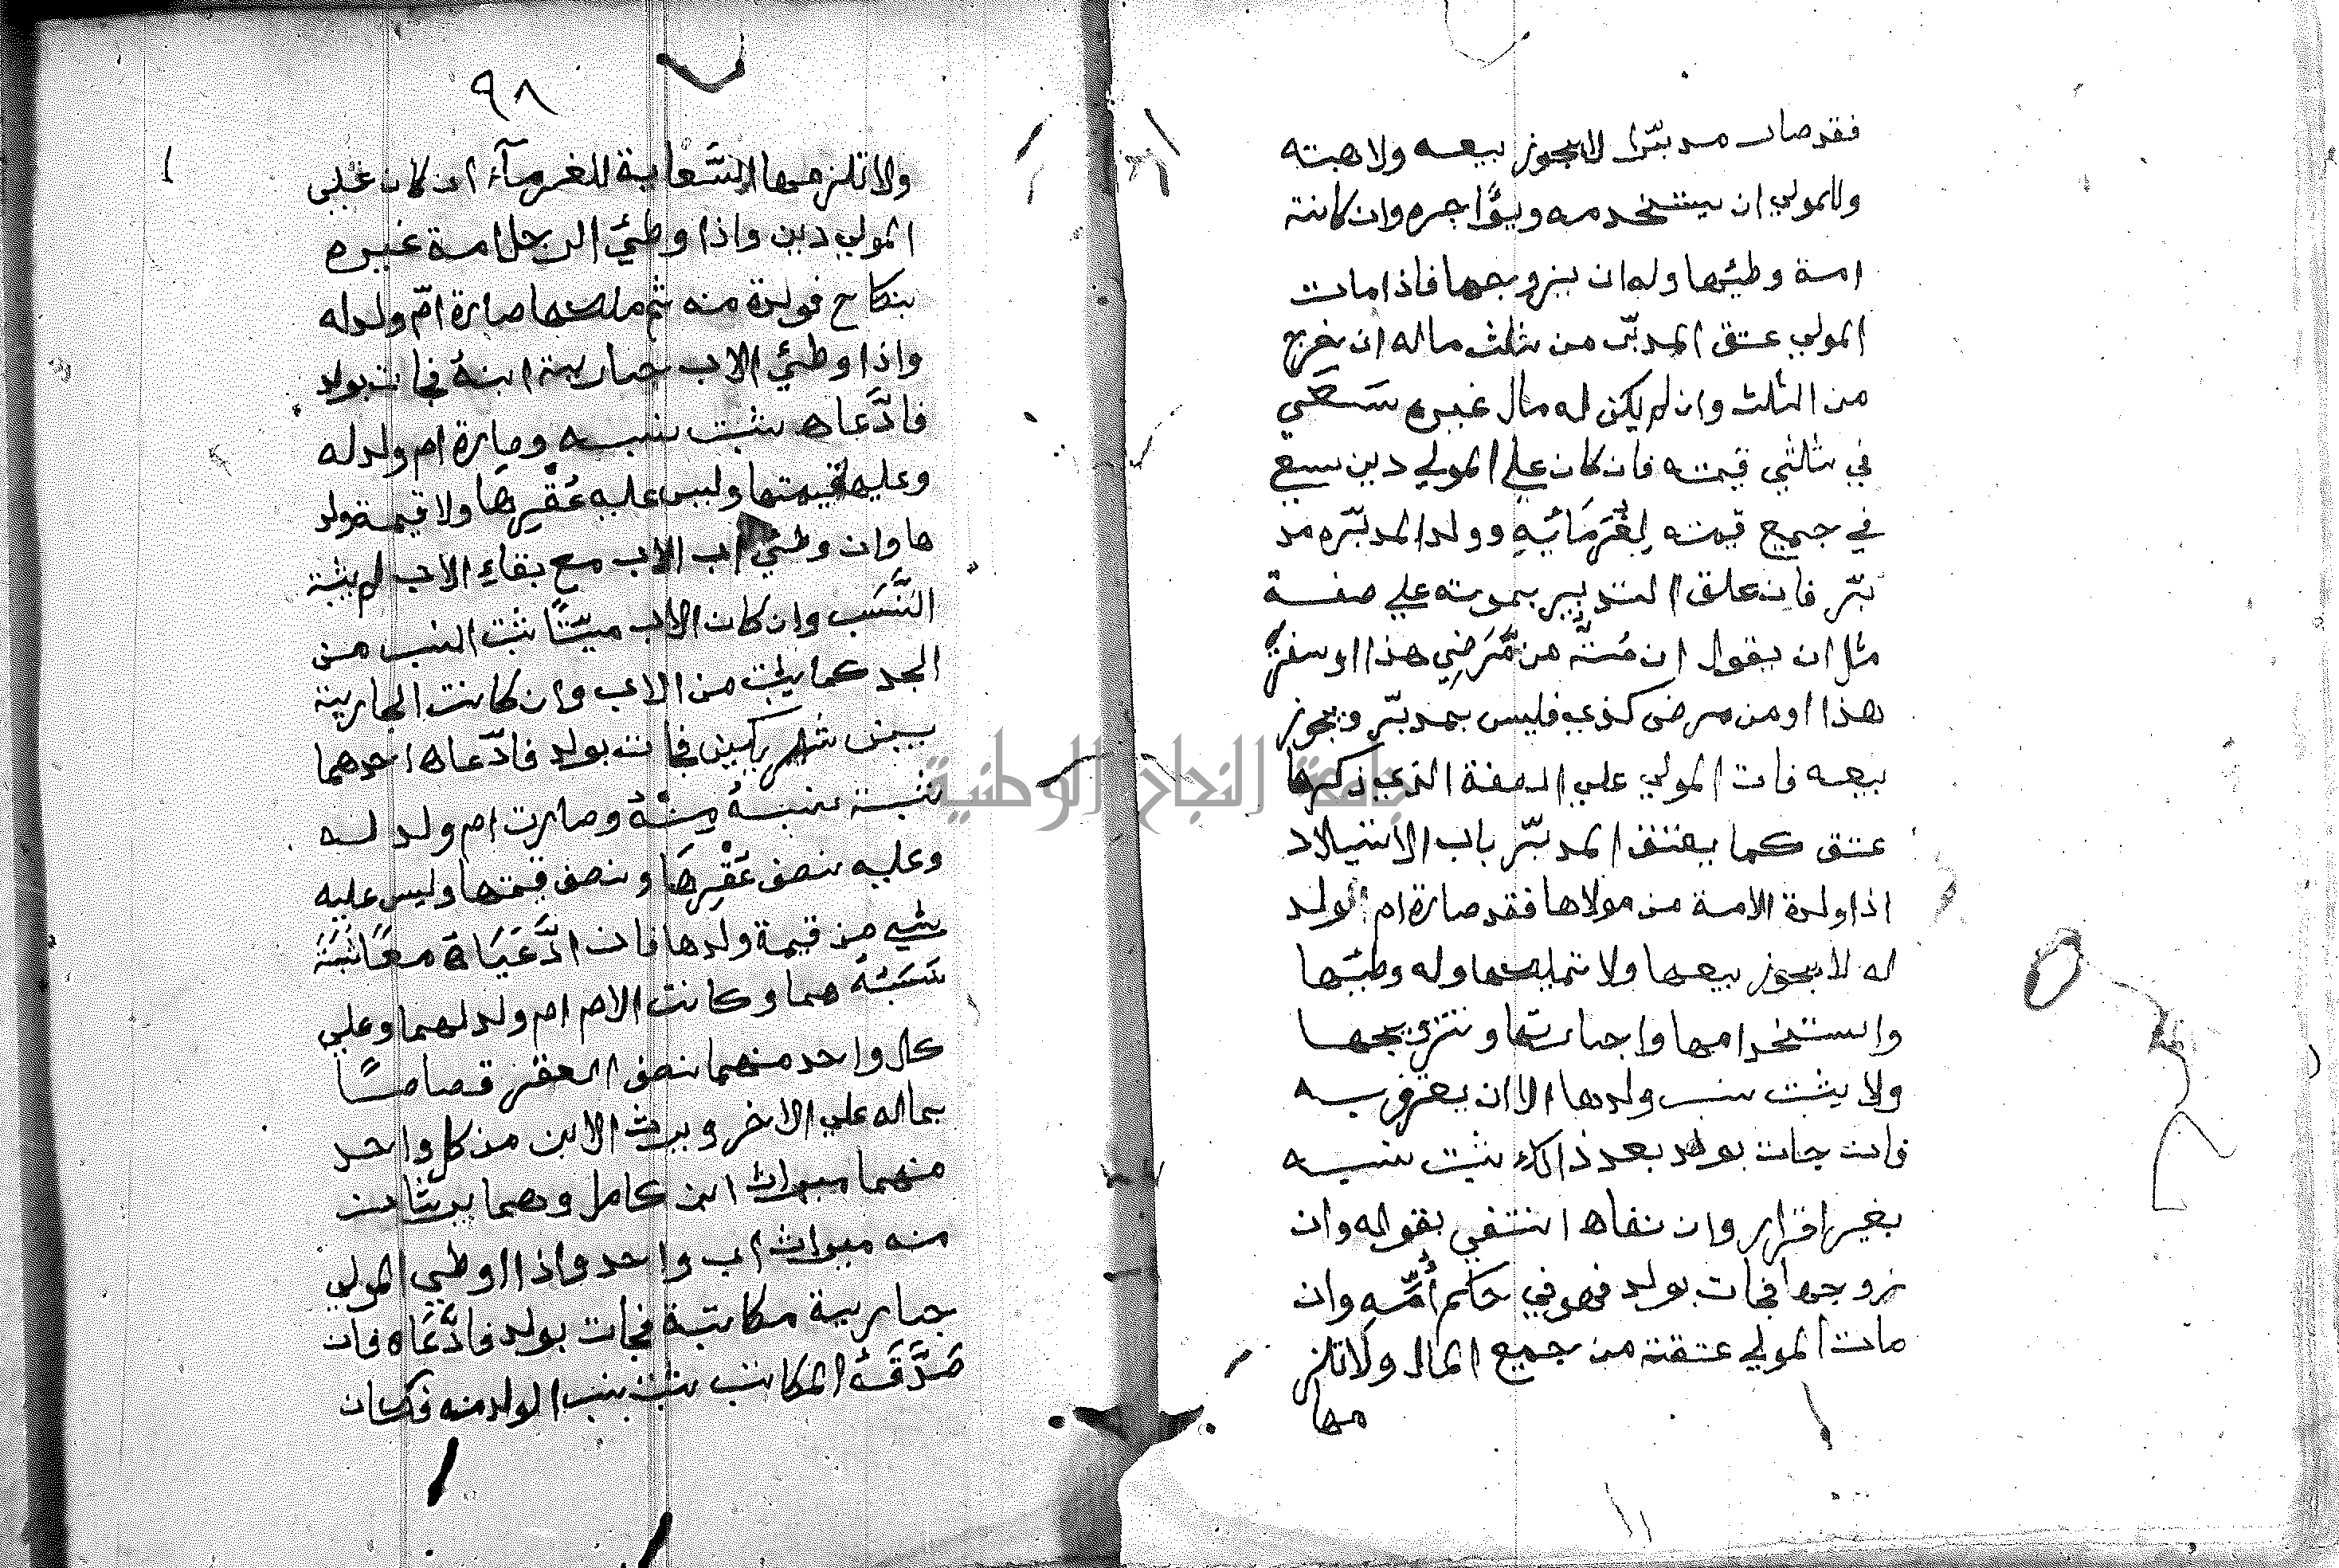 فقد صار مدبّرًا لا يجوز بيعه ولا هبته
وللمولي ان يستخدمه ويؤاجره وان كانة
امة وطيئها وله ان يزوجها فاذا مات
المولي عتق المدبّر من ثلث ماله ان خرج
من الثلث وان لم يكن له مال غيره سَعَي
في ثلثي قيمته فان كان علي المولي دين سعي
في جميع قيمته لِغُرَمَائِهِ وولد المدبّره مد
بّر فان علق التدبير بموته علي صفة
مثل ان يقول ان مُتّ من مَرَضِي هذا او سفري
هذا او من مرض كذي فليس بمدبّر ويجوز
بيعه فان مات المولي علي الصفة الذي ذكرها
عتق كما يعتق المدبّر باب الاستيلاد
اذا ولدة الامة من مولاها فقد صارة ام الولد
له لا يجوز بيعها ولا تمليكها وله وطئها
واستخدامها واجارتها وتزويجها
ولا يثبت نسب ولدها الا ان يعترف به
فان جات بولد بعد ذالك يثبت نسبه
بغير اقرار وان نفاه انتفي بقوله وان
زوجها فجات بولد فهو في حكم أُمِّهِ وان
مات المولي عتقة من جميع المال ولا تلز
مها
٩٨
ولا تلزمها السَّعاية للغرمآء ان كان علي
المولي دين واذا وطئي الرجل امة غيره
بنكاح فولدة منه ثم ملكها صارة امّ ولد له
واذا وطئي الاب جارية ابنهُ فجات بولد
فادَّعاه ثبت نسبه وصارة ام ولد له
وعليه قيمتها وليس عليه عُقْرِهَا ولا قيمة ولد
ها وان وطئي اب الاب مع بقاءِ الاب لم يثبة
النَّسَب وان كان الاب ميّتًا ثبت النسب من
الجد كما يثبت من الاب وان كانت الجارية
بين شريكين فجات بولد فادّعاه احدهما
ثبت نسبهُ مِنْهُ وصارت ام ولد له
وعليه نصف عَقْرِهَا ونصف قيمتها وليس عليه
شيي من قيمة ولدها فان ادَّعَيَاهُ معًا ثَبَتَ
نَسَبُهُ هما وكانت الام ام ولد لهما وعلي
كل واحد منهما نصف العقر قصاصًا
بماله علي الاخر ويرث الابن من كل واحد
منهما ميراث ابن كامل وهما يرثان
منه ميراث اب واحد واذا اوطي المولي
جارية مكاتبة فجات بولد فادَّعَاه فان
صَدَّقَهُ المكاتب ثبت نسب الولد منه فكان
جامعة النجاح الوطنية